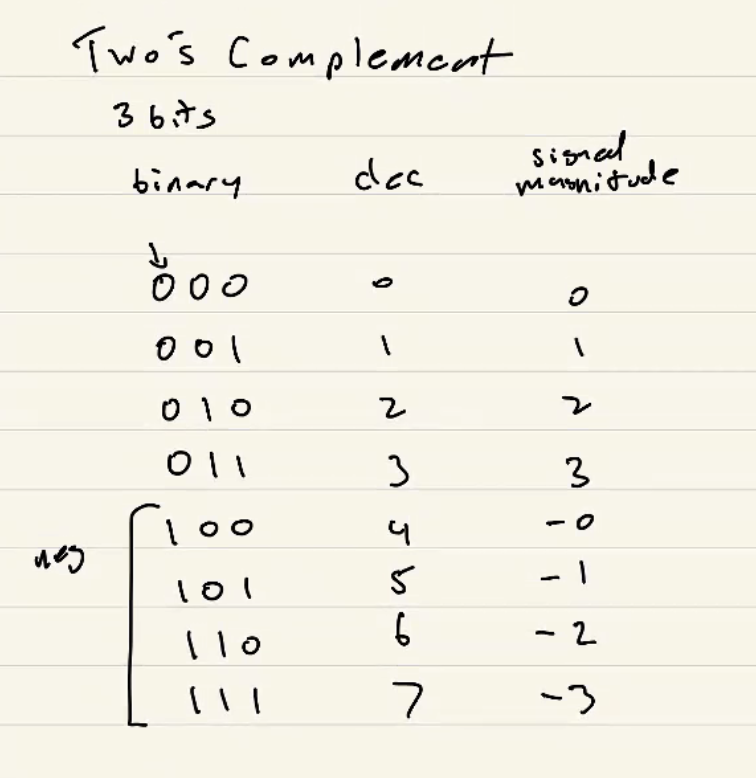 Two's Complement
3 bits
binary dec signed magnitude
000 0 0
001 1 1
010 2 2
011 3 3
neg 100 4 -0
101 5 -1
110 6 -2
111 7 -3